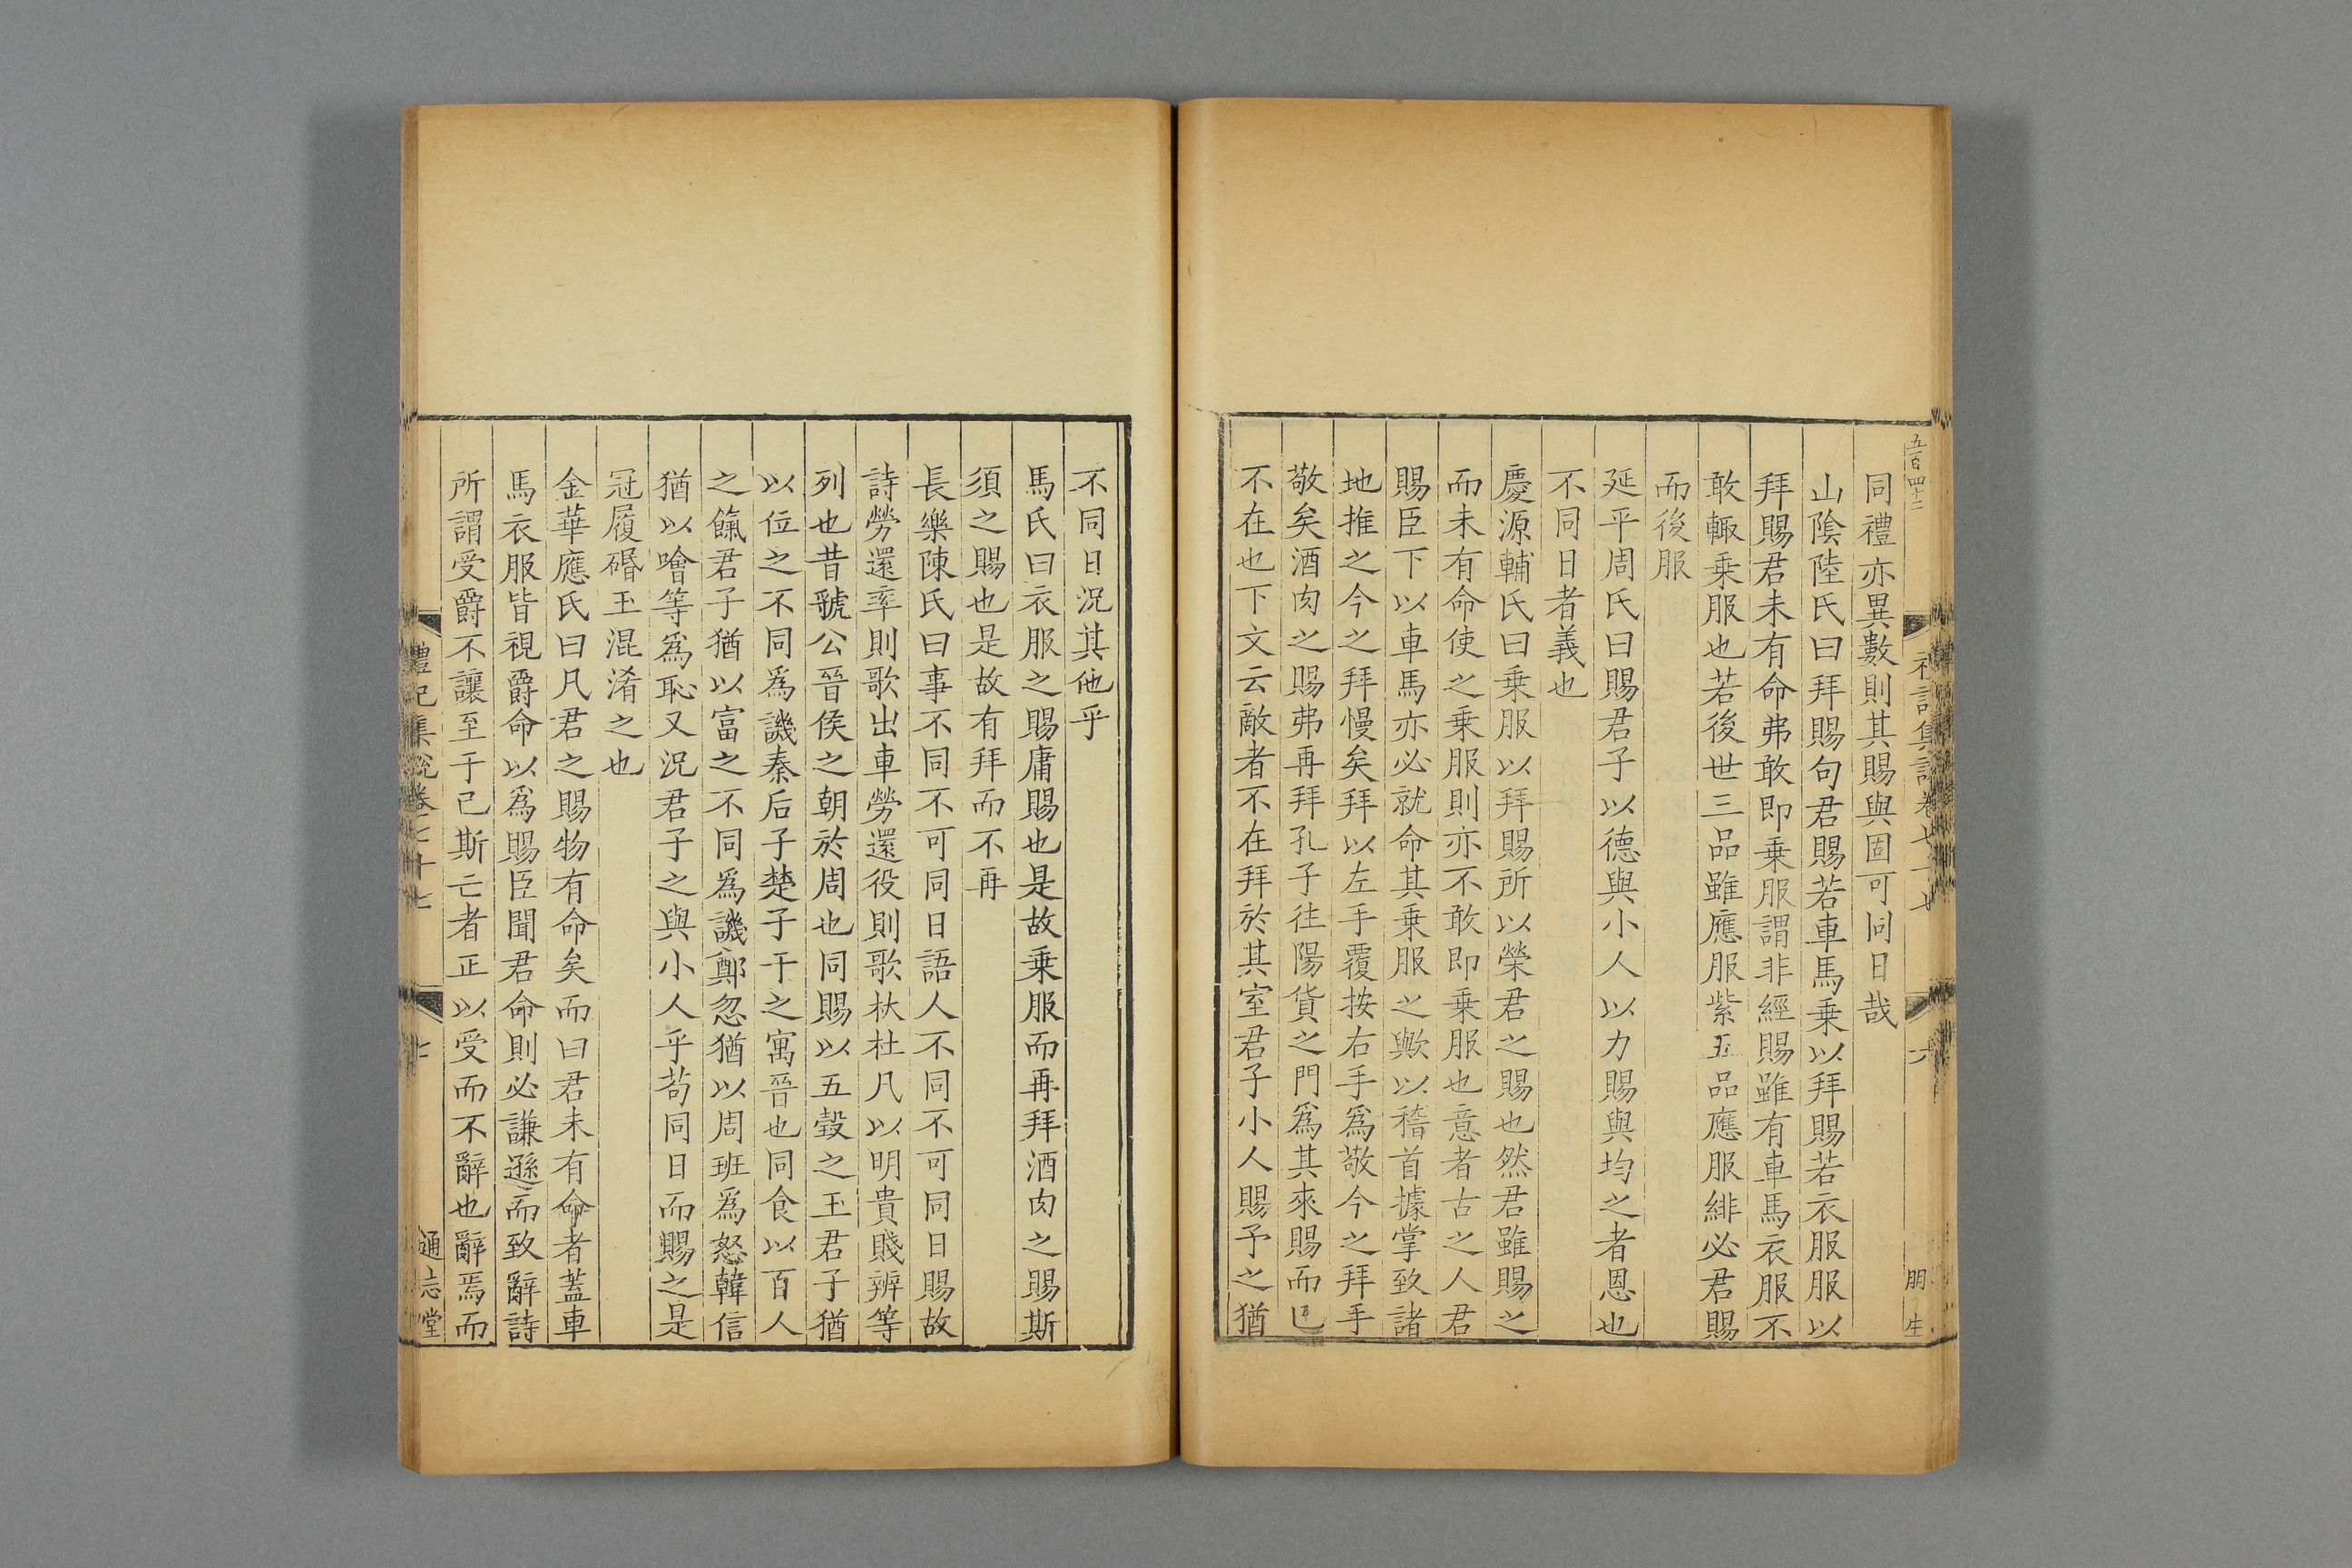 五百四十二
同禮亦異數則其賜與固可同日哉
山陰陸氏曰拜賜句君賜若車馬乗以拜賜若衣服服以
拜賜君未有命弗敢即乗服謂非經賜雖有車馬衣服不
敢輙乗服也若後世三品雖應服紫五品應服緋必君賜
而後服
延平周氏曰賜君子以德與小人以力賜與均之者恩也
不同日者義也
慶源輔氏曰乗服以拜賜所以榮君之賜也然君雖賜之
而未有命使之乗服則亦不敢即乗服也意者古之人君
賜臣下以車馬亦必就命其乗服之歟以稽首據掌致諸
地推之今之拜慢矣拜以左手覆按右手爲敬今之拜手
敬矣酒肉之賜弗再拜孔子往陽貨之門爲其來賜而已
不在也下文云敵者不在拜於其室君子小人賜予之猶
禮記集說卷七十七
六
朋生
不同日況其他乎
馬氏曰衣服之賜庸賜也是故乗服而再拜酒肉之賜斯
須之賜也是故有拜而不再
長樂陳氏曰事不同不可同日語人不同不可同日賜故
詩勞還率則歌出車勞還役則歌杕杜凡以明貴賤辨等
列也昔虢公晉侯之朝於周也同賜以五瑴之玉君子猶
以位之不同爲譏秦后子楚子干之寓晉也同食以百人
之餼君子猶以富之不同爲譏鄭忽猶以周班爲怒韓信
猶以噲等爲恥又況君子之與小人乎苟同日而賜之是
冠履碈玉混淆之也
金華應氏曰凡君之賜物有命矣而曰君未有命者蓋車
馬衣服皆視爵命以爲賜臣聞君命則必謙遜而致辭詩
所謂受爵不讓至于已斯亡者正以受而不辭也辭焉而
禮記集說卷七十七
七
通志堂